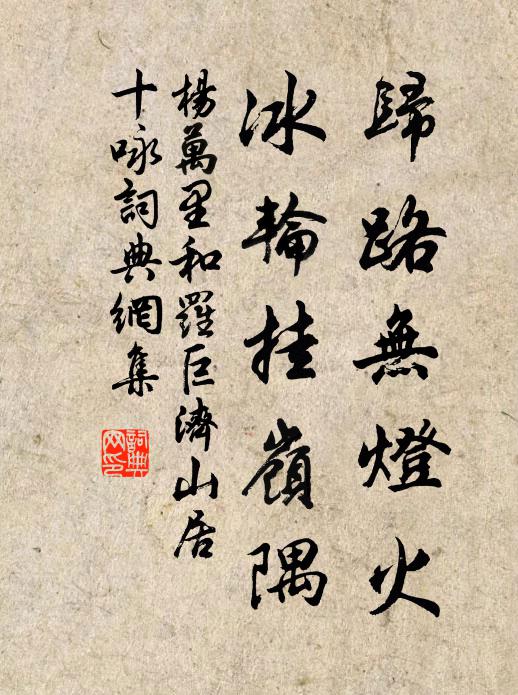 歸路無燈火
冰輪挂嶺隅
楊萬里和羅巨濟山居
十咏詞典網集
詞典
网印